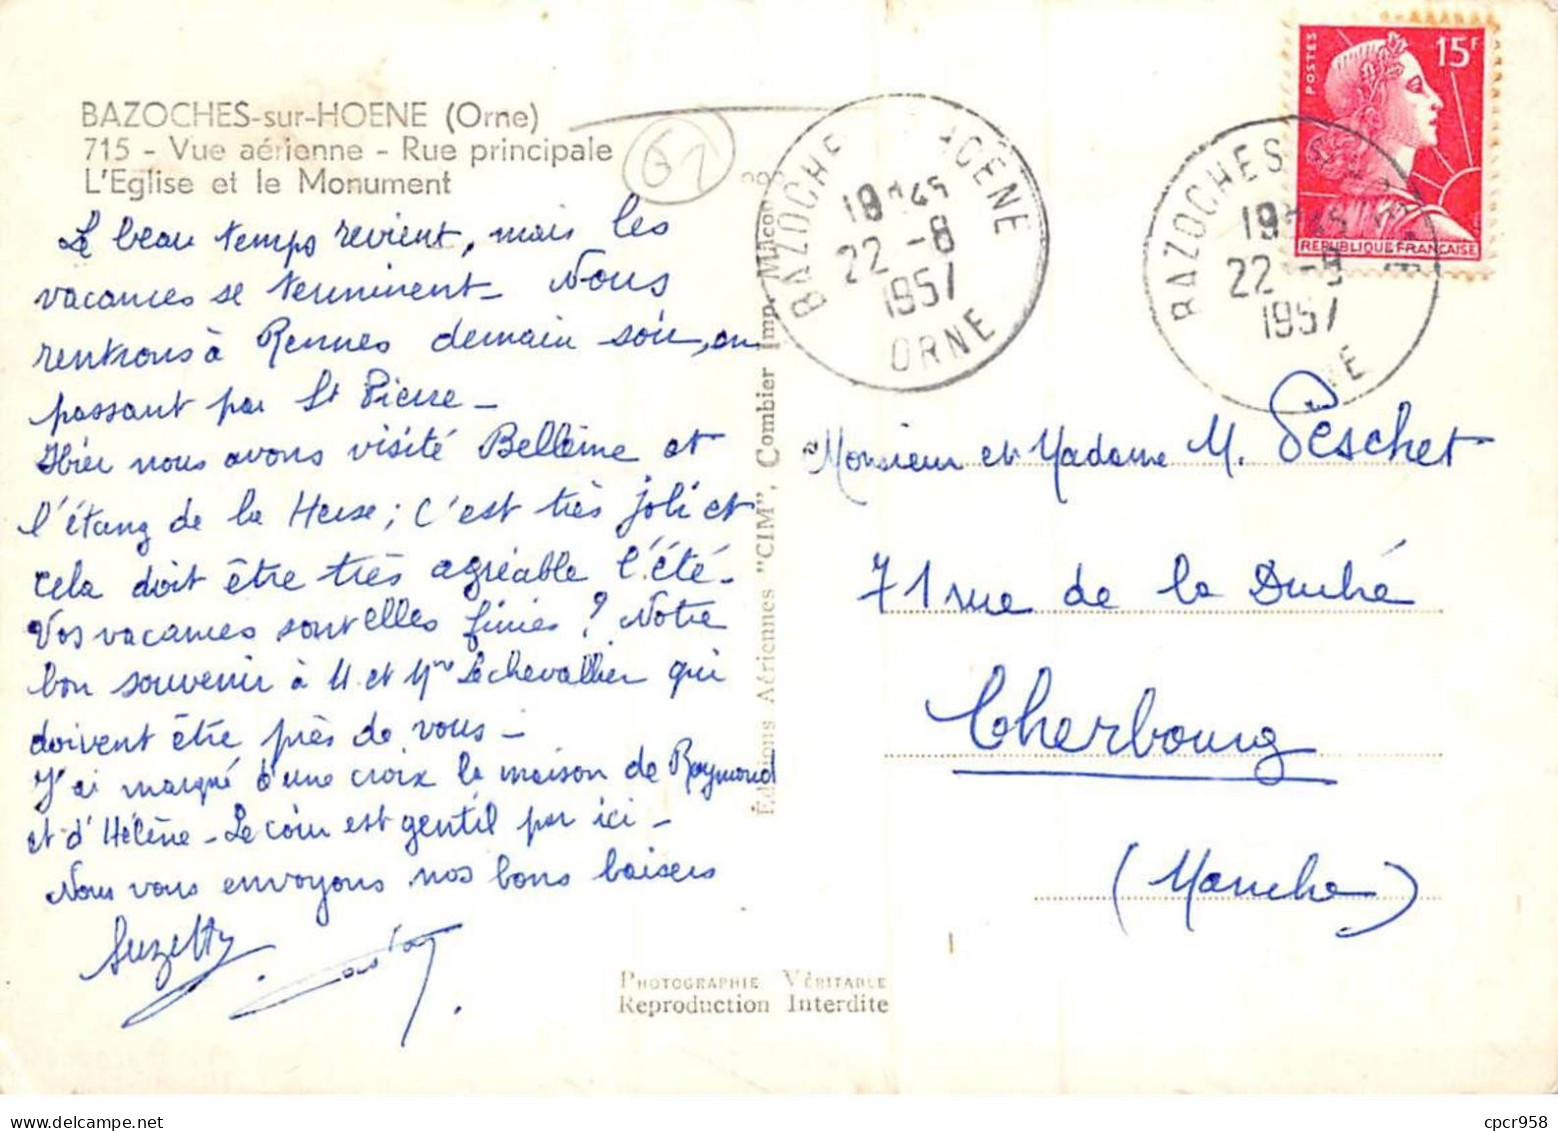 BAZOCHES-sur-HOENE (Orne)
715 - Vue aérienne - Rue principale
L'Eglise et le Monument
61
Le beau temps revient, mais les
vacances se terminent - Nous
rentrons à Rennes demain soir, en
passant par St Pierre -
Hier nous avons visité Bellème et
l'étang de la Herse ; C'est très joli et
cela doit être très agréable l'été -
Vos vacances sont elles finies ? Notre
bon souvenir à M et Mme Lechevallier qui
doivent être près de vous -
J'ai marqué d'une croix la maison de Raymond
et d'Hélène - Le coin est gentil par ici -
Nous vous envoyons nos bons baisers
Suzette
Éditions Aériennes "CIM", Combier Imp. Macon
PHOTOGRAPHIE VÉRITABLE
Reproduction Interdite
BAZOCHES HOENE
22 -8
1957
ORNE
BAZOCHES S
19H45
22 -8
1957
POSTES
15F
REPUBLIQUE FRANCAISE
Monsieur et Madame M. Peschet
71 rue de la Duché
Cherbourg
(Manche)
cpcr958